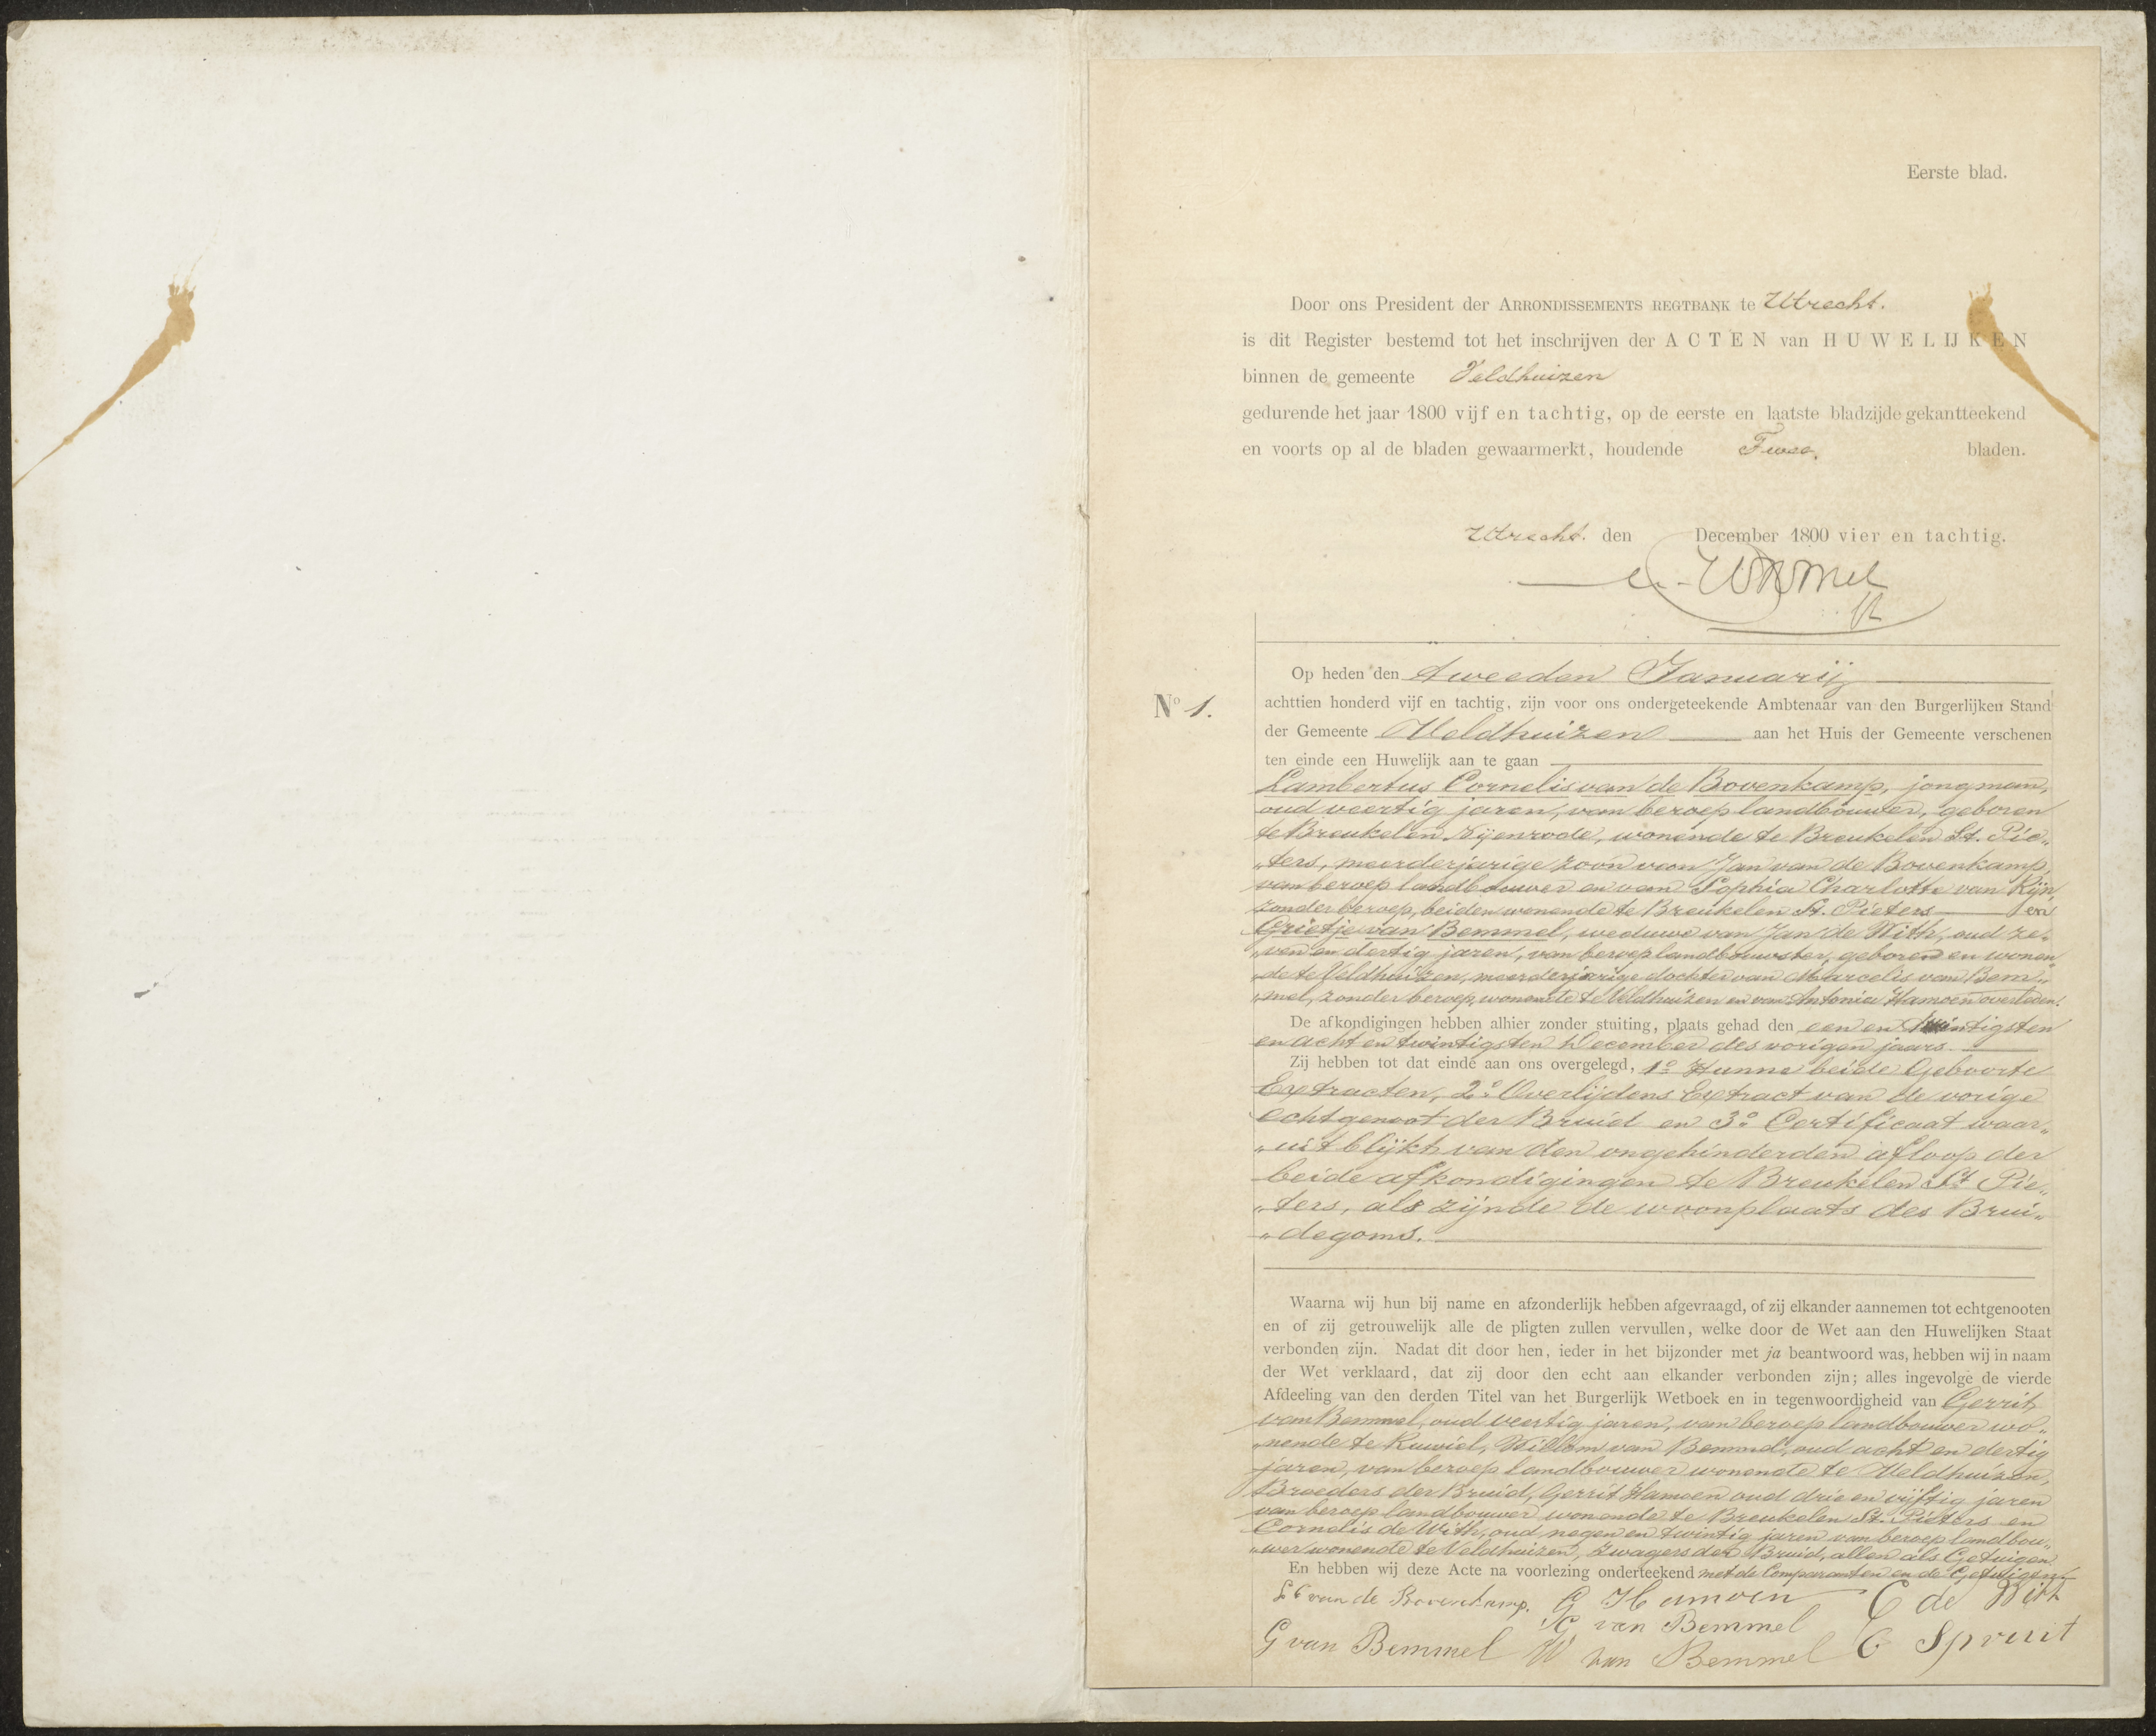 Eerste blad.
Door ons President der ARRONDISSEMENTS REGTBANK te Utrecht.
is dit Register bestemd tot het inschrijven der ACTEN van HUWELIJKEN
binnen de gemeente Veldhuizen
gedurende het jaar 1800 vijf en tachtig, op de eerste en laatste bladzijde gekantteekend
en voorts op al de bladen gewaarmerkt, houdende Twee, bladen.
Utrecht. den December 1800 vier en tachtig.
Op heden den tweeden Januarij
No 1.
achttien honderd vijf en tachtig, zijn voor ons ondergeteekende Ambtenaar van den Burgerlijken Stand
der Gemeente Veldhuizen aan het Huis der Gemeente verschenen
ten einde een Huwelijk aan te gaan
Lambertus Cornelis van de Bovenkamp, jongman,
oud veertig jaren, van beroep landbouwer, geboren
te Breukelen Nijenrode, wonende te Breukelen St. Pie„
„ters, meerderjarige zoon van Jan van de Bovenkamp,
van beroep landbouwer en van Sophia Charlotte van Rijn,
zonder beroep, beiden wonende te Breukelen St. Pieters en
Grietje van Bemmel, weduwe van Jan de With, oud ze„
„ven en dertig jaren, van beroep landbouwster, geboren en wonen„
„de te Veldhuizen, meerderjarige dochter van Marcelis van Bem„
„mel, zonder beroep, wonende te Veldhuizen en van Antonia Hamoen overleden.
De afkondigingen hebben alhier zonder stuiting, plaats gehad den een en twintigsten
en acht en twintigsten December des vorigen jaars.
Zij hebben tot dat einde aan ons overgelegd, 1o Hunne beide Geboorte
Extracten, 2o Overlijdens Extract van de vorige
echtgenoot der Bruid en 3o Certificaat waar„
„uit blijkt van den ongehinderden afloop der
beide afkondigingen te Breukelen St Pie„
„ters, als zijnde de woonplaats des Brui„
„degoms.
Waarna wij hun bij name en afzonderlijk hebben afgevraagd, of zij elkander aannemen tot echtgenooten
en of zij getrouwelijk alle de pligten zullen vervullen, welke door de Wet aan den Huwelijken Staat
verbonden zijn. Nadat dit door hen, ieder in het bijzonder met ja beantwoord was, hebben wij in naam
der Wet verklaard, dat zij door den echt aan elkander verbonden zijn; alles ingevolge de vierde
Afdeeling van den derden Titel van het Burgerlijk Wetboek en in tegenwoordigheid van Gerrit
van Bemmel, oud veertig jaren, van beroep landbouwer wo„
„nende te Ruwiel, Willem van Bemmel, oud acht en dertig
jaren, van beroep landbouwer wonende te Veldhuizen,
Broeders der Bruid, Gerrit Hamoen oud drie en vijftig jaren
van beroep landbouwer wonende te Breukelen St. Pieters en
Cornelis de With, oud negen en twintig jaren van beroep landbou„
„wer wonende te Veldhuizen, zwagers der Bruid, allen als Getuigen.
En hebben wij deze Acte na voorlezing onderteekend met de Comparanten en de Getuigen.
L C van de Bovenkamp. G Hamoen C de With
G van Bemmel
G van Bemmel W van Bemmel C Spruit